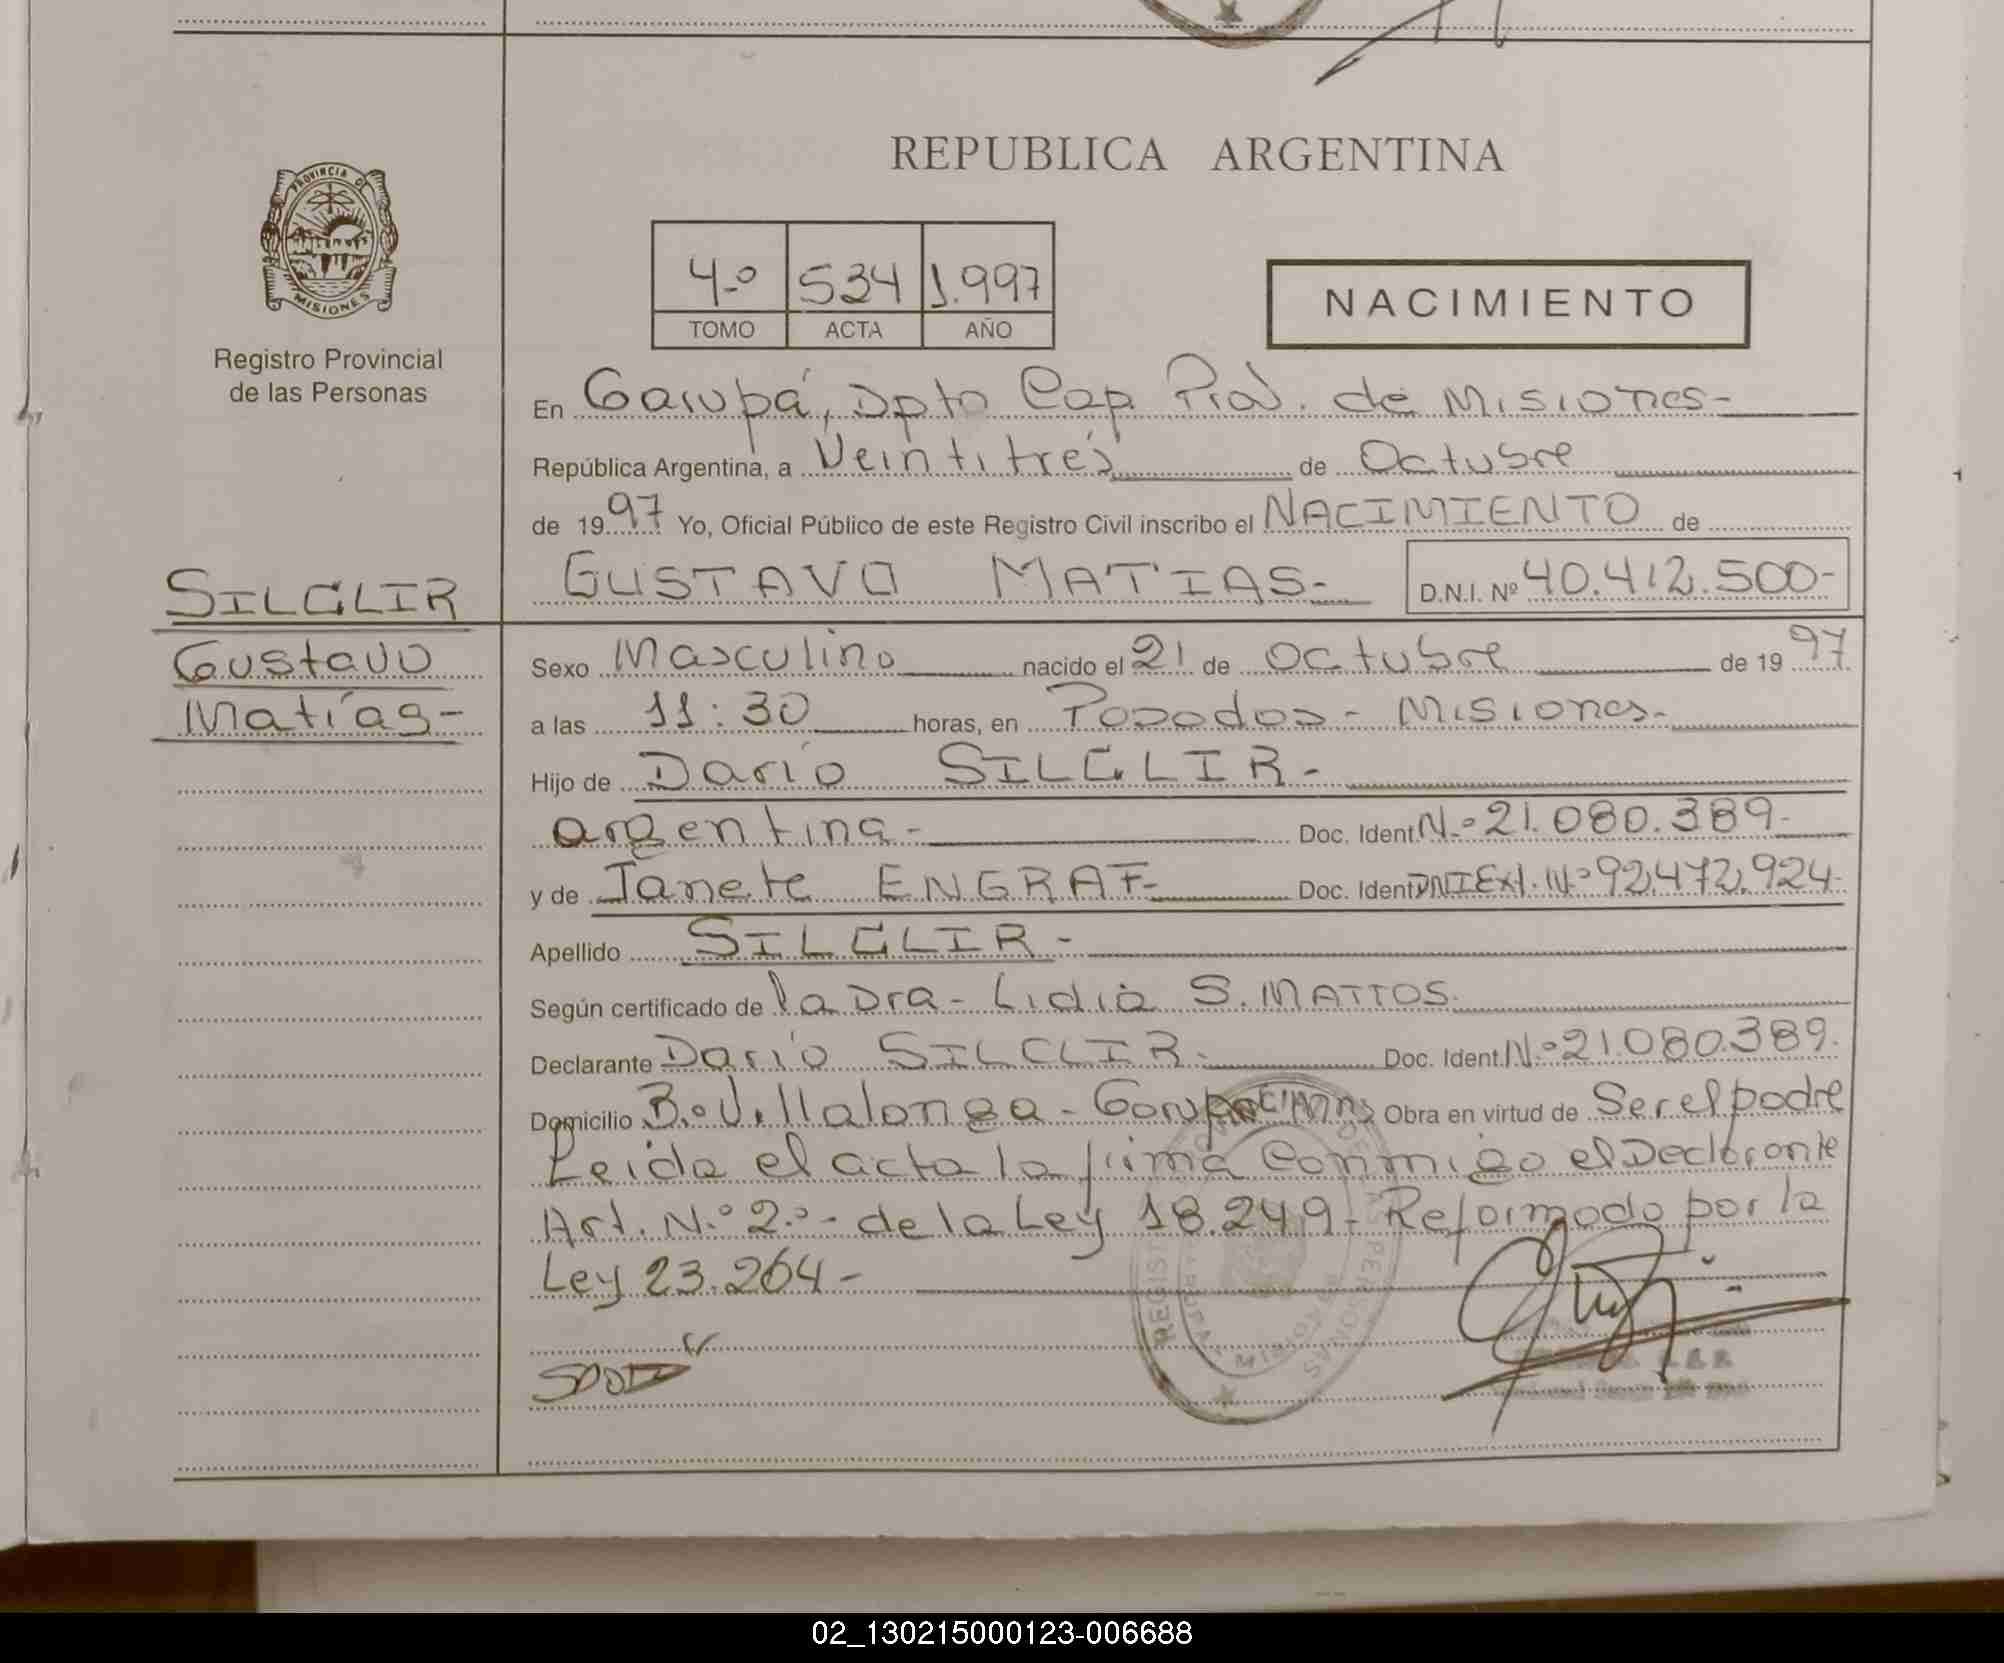 REPUBLICA ARGENTINA
PROVINCIA DE
MISIONES
Registro Provincial
de las Personas
4.º 534 1.997
TOMO ACTA AÑO
NACIMIENTO
En Garupá, Dpto Cap. Prov. de Misiones-
República Argentina, a Veintitrés de Octubre
de 1997 Yo, Oficial Público de este Registro Civil inscribo el NACIMIENTO de
GUSTAVO MATIAS- D.N.I. Nº 40.412.500-
SILGLIR
Gustavo
Matías-
Sexo Masculino nacido el 21 de Octubre de 1997
a las 11:30 horas, en Posadas - Misiones-
Hijo de Darío SILGLIR-
argentina- Doc. Ident. N.º 21.080.389-
y de Janete ENGRAF- Doc. Ident. DNI Ext. N.º 92.472.924-
Apellido SILGLIR-
Según certificado de la Dra- Lidia S. MATTOS-
Declarante Darío SILGLIR- Doc. Ident. N.º 21.080.389-
Domicilio B.º Villalonga - Garupá Obra en virtud de Ser el padre
Leida el acta la firma Conmigo el Declarante
Art. N.º 2.º- de la Ley 18.249- Reformado por la
Ley 23.264-
REGISTRO DE LAS PERSONAS
MISIONES
02_130215000123-006688